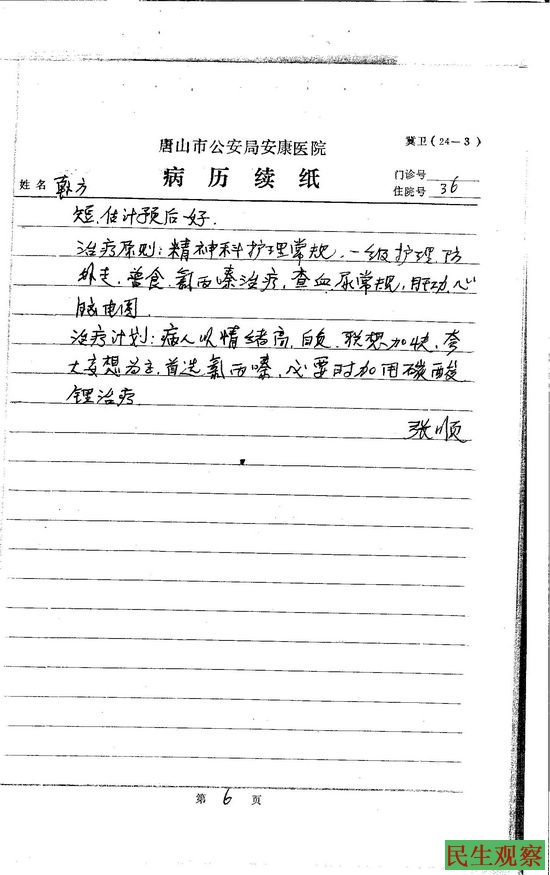 冀卫(24—3)
唐山市公安局安康医院
病历续纸
门诊号
姓名 方
住院号 36
短,估计预后好.
治疗原则:精神科护理常规,一级护理,防
外走,普食,氯丙嗪治疗,查血尿常规,肝功,心
脑电图.
治疗计划:病人以情绪高,自负,联想加快,夸
大妄想为主,首选氯丙嗪,必要时加用碳酸
锂治疗.
张顺
第 6 页
民生观察